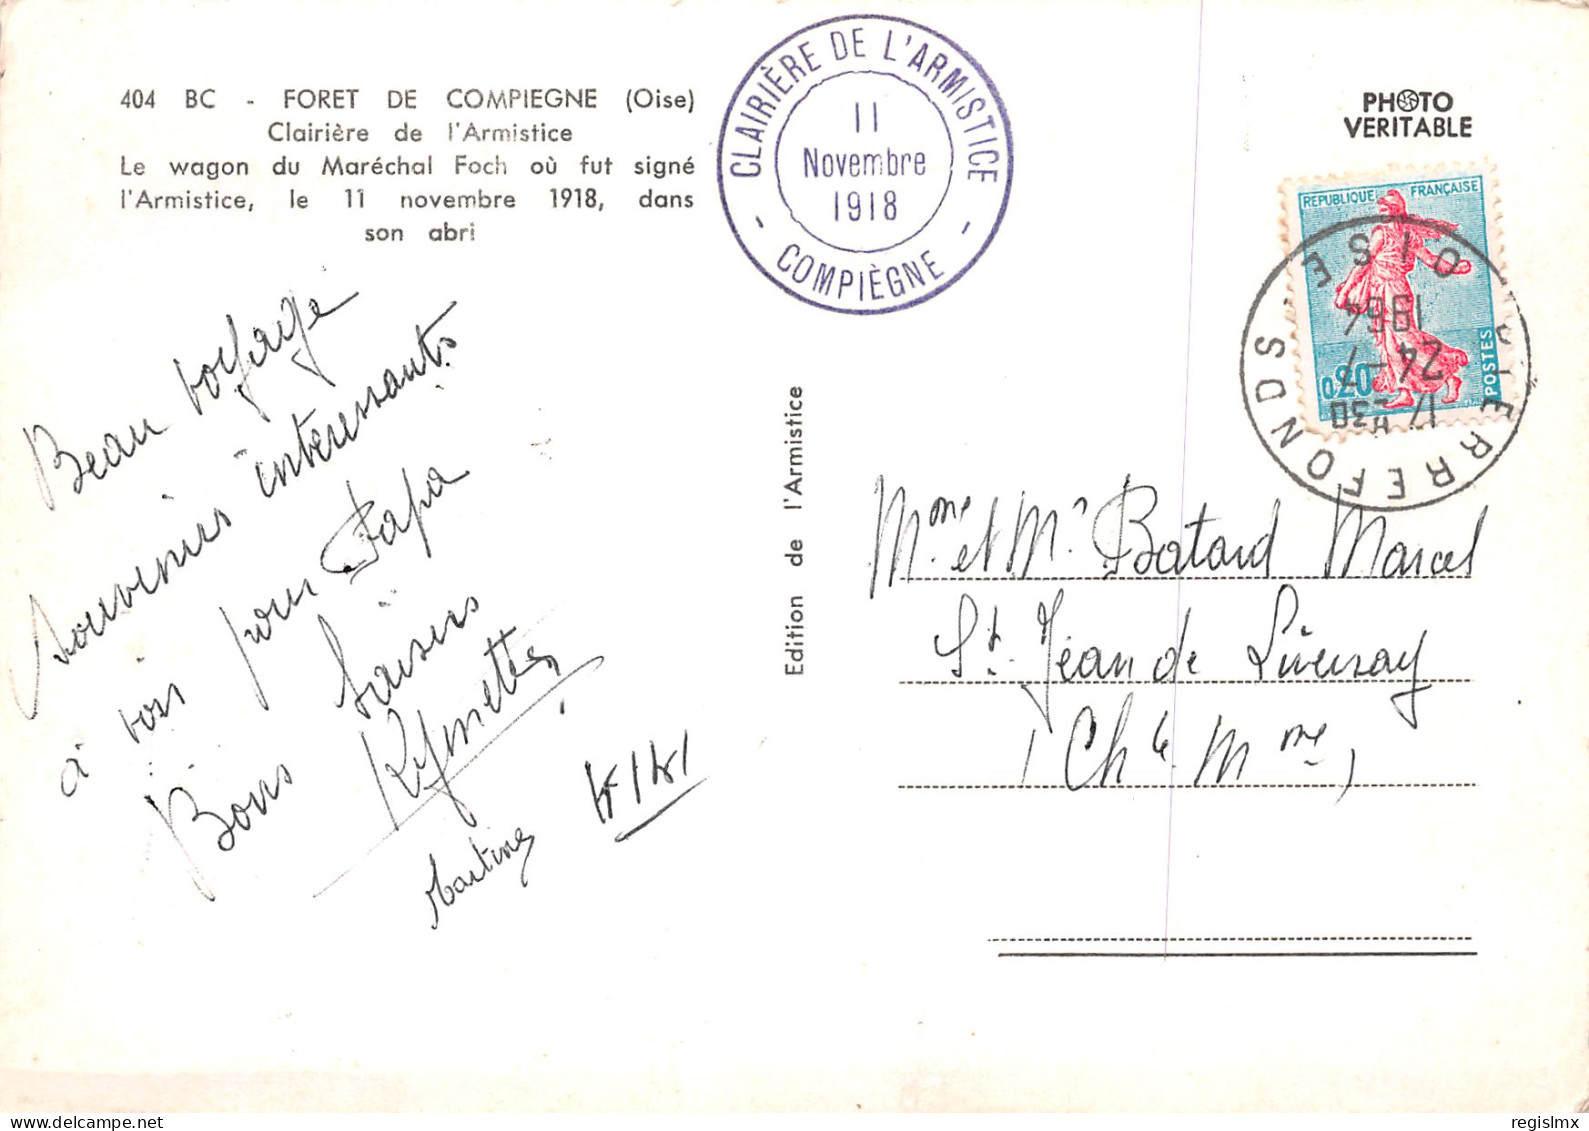 404 BC - FORET DE COMPIEGNE (Oise)
Clairière de l'Armistice
Le wagon du Maréchal Foch où fut signé
l'Armistice, le 11 novembre 1918, dans
son abri
CLAIRIÈRE DE L'ARMISTICE
11
Novembre
1918
- COMPIÈGNE -
PHOTO
VERITABLE
REPUBLIQUE FRANÇAISE
0,20
POSTES
OISE
1964
24-7
17 H30
PIERREFONDS
Beau voyage
souvenirs intéressants
à voir pour Papa
Bons baisers
Martine KIKI
Edition de l'Armistice
Mme et Mr Batard Marcel
St Jean de Liversay
(Chte Mme)
regislmx